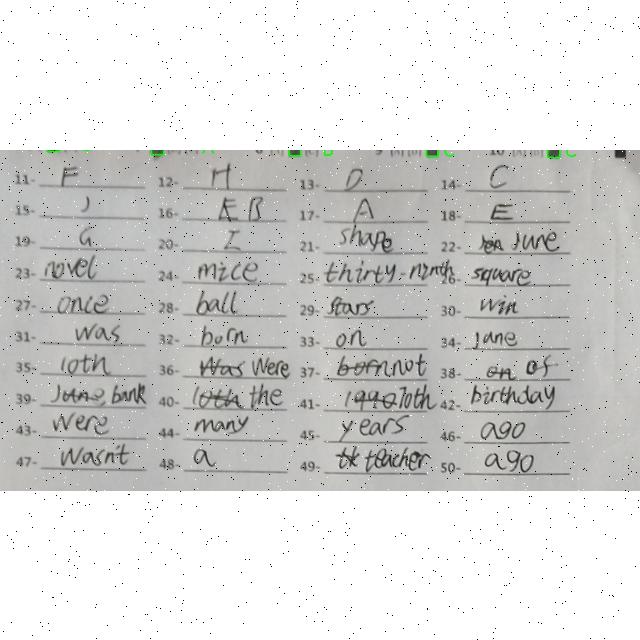 11- F 12- H 13- D 14- C
15- J 16- B 17- A 18- E
19- G 20- I 21- shape 22- June
23- novel 24- mice 25- thirty-ninth 26- square
27- once 28- ball 29- stars 30- win
31- was 32- born 33- on 34- june
35- 10th 36- Was Were 37- born not 38- on of
39- June bank 40- 10th the 41- 1990 10th 42- birthday
43- Were 44- many 45- years 46- ago
47- Wasn't 48- a 49- teacher 50- ago